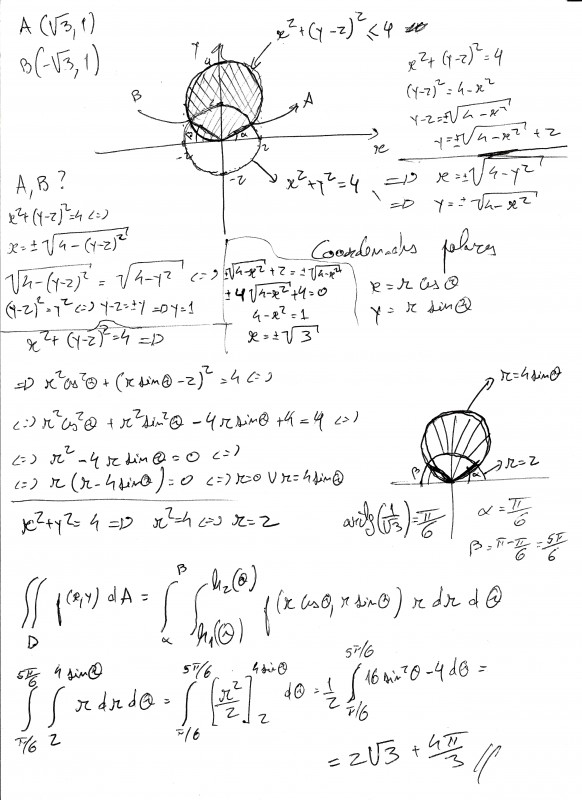 A(√3, 1)
B(-√3, 1)
y
4
x² + (y-2)² ≤ 4
B
A
2
α
-2
2
x
-2
x² + y² = 4
x² + (y-2)² = 4
(y-2)² = 4-x²
y-2 = ±√(4-x²)
y = ±√(4-x²) + 2
=> x = ±√(4-y²)
=> y = ±√(4-x²)
A, B ?
x² + (y-2)² = 4 <=>
x = ±√(4-(y-2)²)
√(4-(y-2)²) = √(4-y²) <=>
(y-2)² = y² <=> y-2 = ±y => y = 1
±√(4-x²) + 2 = ±√(4-x²)
±4√(4-x²) + 4 = 0
4-x² = 1
x = ±√3
Coordenadas polares
x = r cos θ
y = r sin θ
x² + (y-2)² = 4 =>
=> r² cos² θ + (r sin θ - 2)² = 4 <=>
<=> r² cos² θ + r² sin² θ - 4 r sin θ + 4 = 4 <=>
<=> r² - 4 r sin θ = 0 <=>
<=> r (r - 4 sin θ) = 0 <=> r = 0 ∨ r = 4 sin θ
x² + y² = 4 => r² = 4 <=> r = 2
r = 4 sin θ
β
α
r = 2
arctg(1/√3) = π/6
α = π/6
β = π - π/6 = 5π/6
∬_D f(x,y) dA = ∫_α^β ∫_{h₁(θ)}^{h₂(θ)} f(r cos θ, r sin θ) r dr dθ
∫_{π/6}^{5π/6} ∫_2^{4 sin θ} r dr dθ = ∫_{π/6}^{5π/6} [r²/2]_2^{4 sin θ} dθ = 1/2 ∫_{π/6}^{5π/6} 16 sin² θ - 4 dθ =
= 2√3 + 4π/3 //